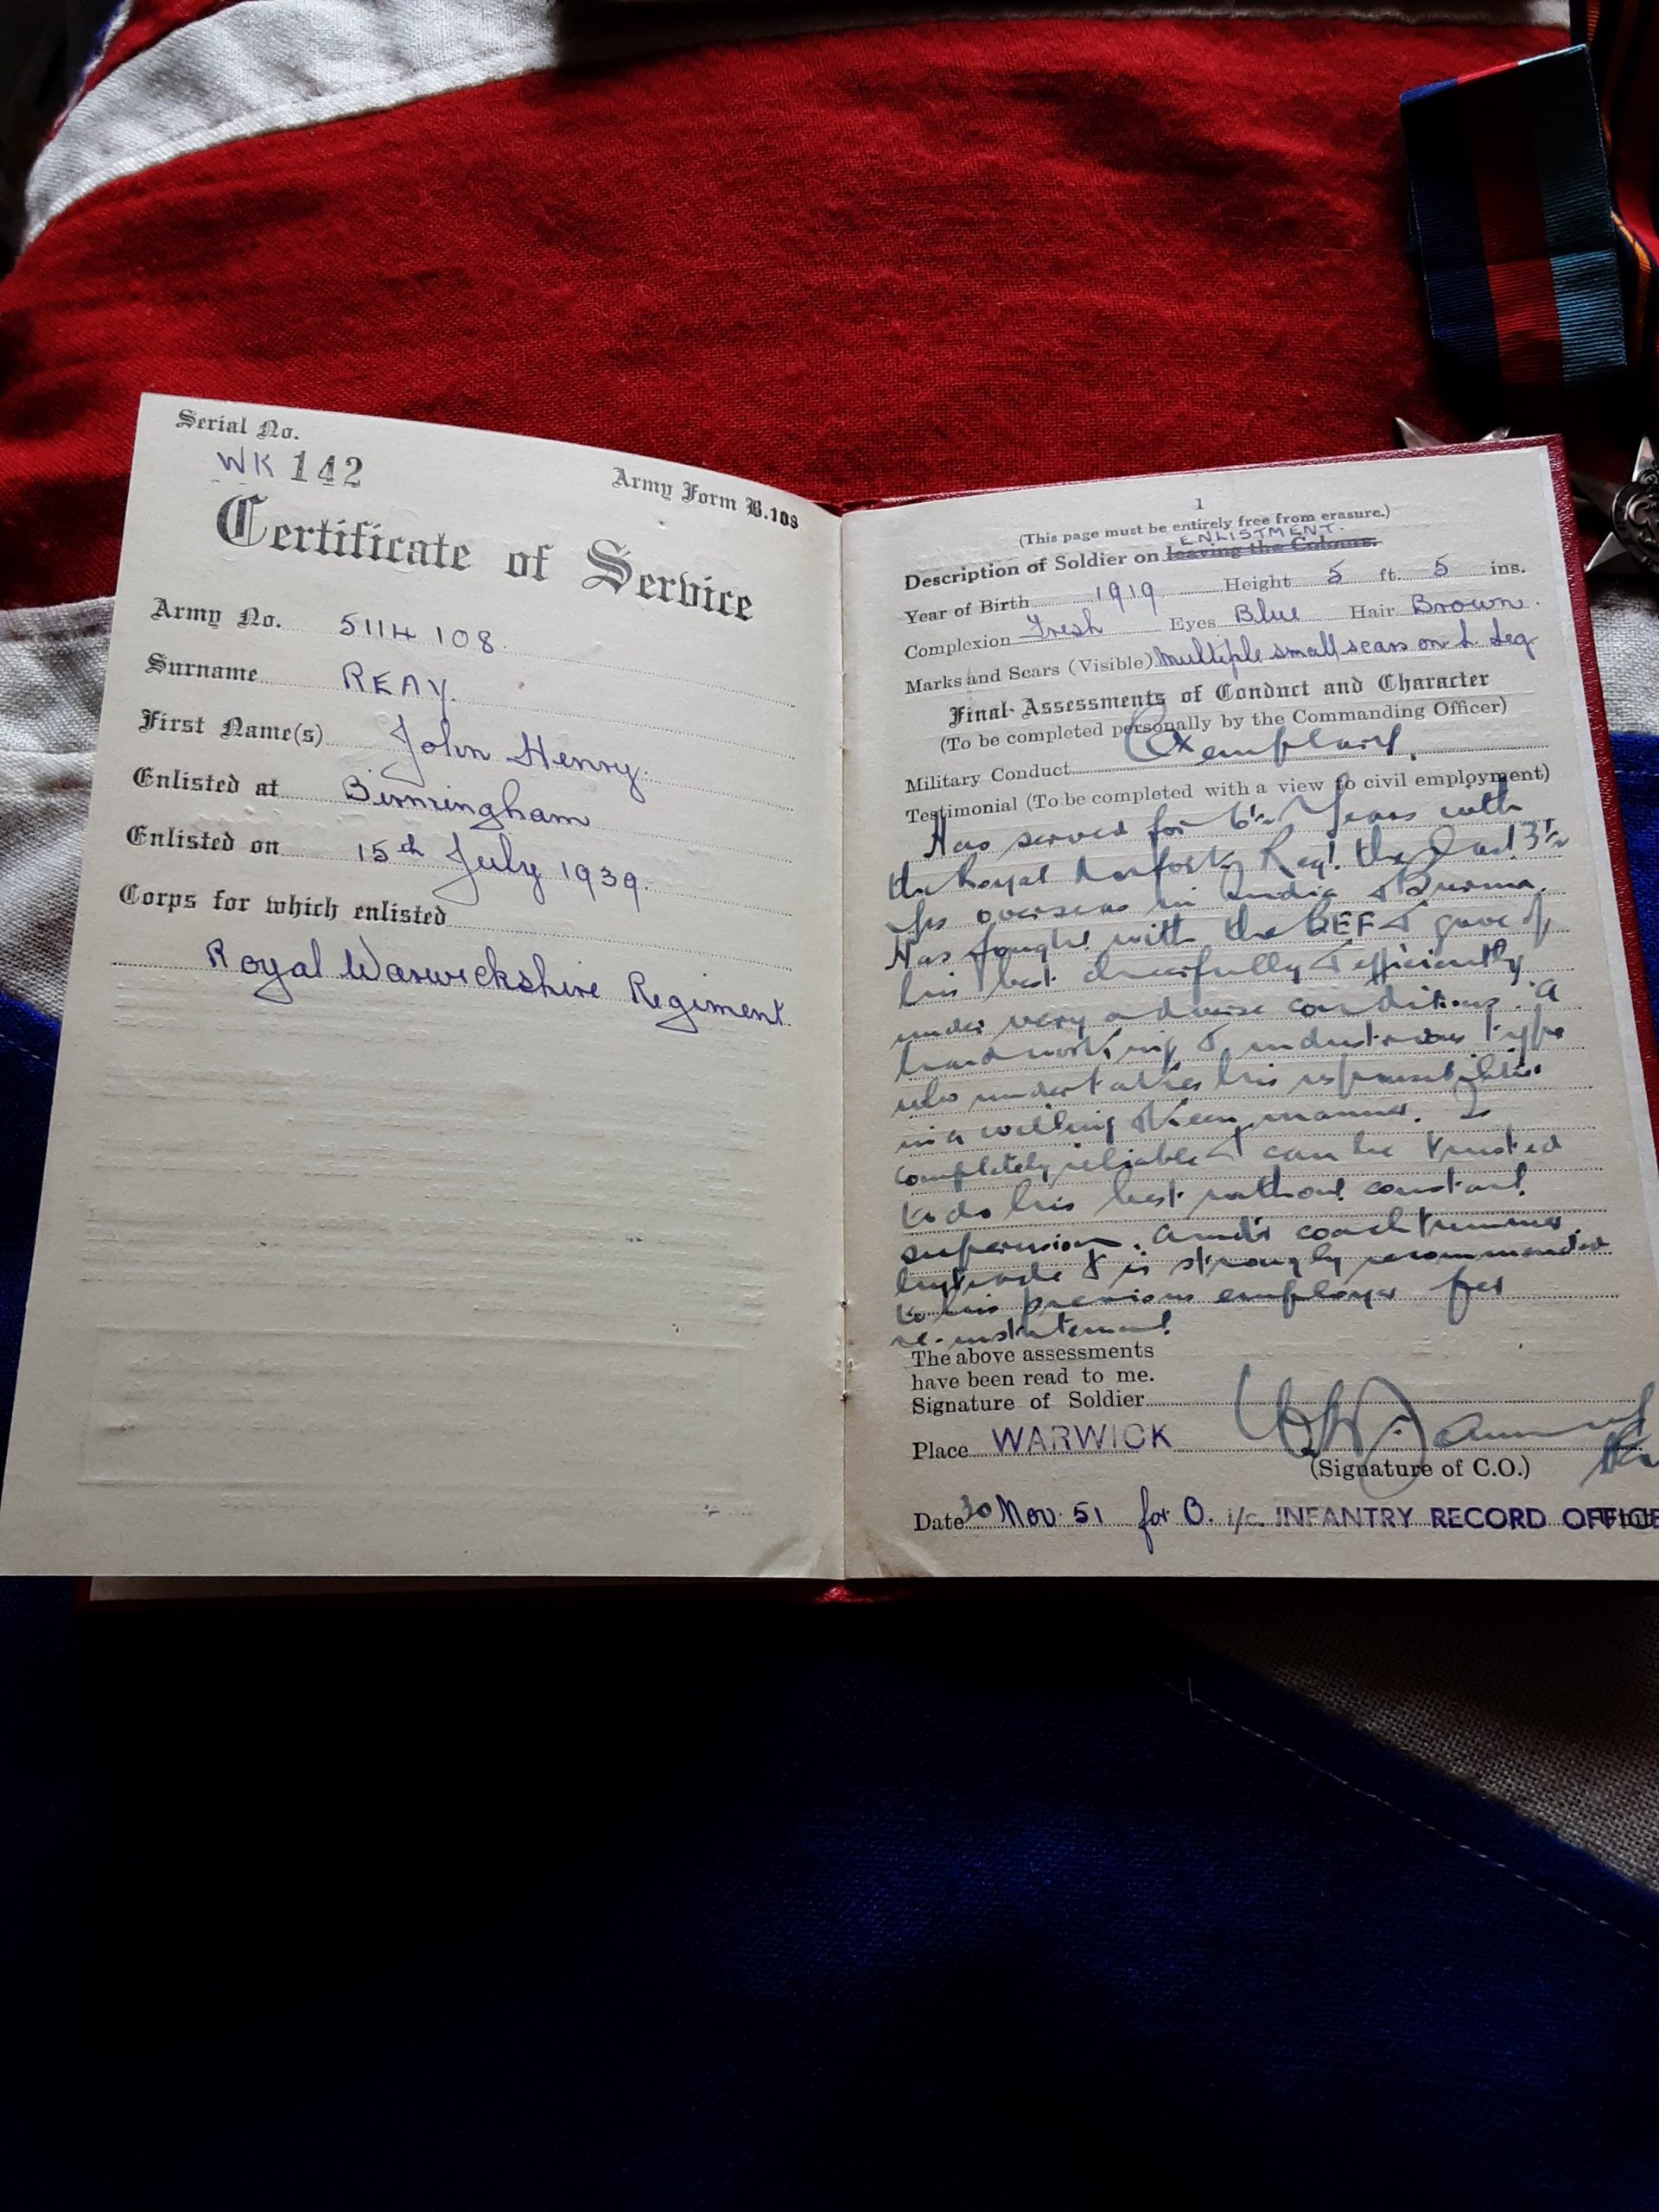 Serial No.
WK 142
Army Form B.108
Certificate of Service
Army No. 5114108.
Surname REAY.
First Name(s) John Henry.
Enlisted at Birmingham
Enlisted on 15th July 1939.
Corps for which enlisted
Royal Warwickshire Regiment.
1
(This page must be entirely free from erasure.)
ENLISTMENT.
Description of Soldier on leaving the Colours.
Year of Birth 1919 Height 5 ft. 5 ins.
Complexion Fresh Eyes Blue Hair Brown.
Marks and Scars (Visible) Multiple small scars on L. Leg
Final Assessments of Conduct and Character
(To be completed personally by the Commanding Officer)
Military Conduct Exemplary.
Testimonial (To be completed with a view to civil employment)
Has served for 6½ Years with
the Royal Norfolk Regt. the last 3½
yrs overseas in India & Burma.
Has fought with the BEF & gave of
his best cheerfully & efficiently
under very adverse conditions. A
hardworking & industrious type
who undertakes his responsibilities
in a willing & keen manner. Is
completely reliable & can be trusted
to do his best without constant
supervision. coach trimmer
by trade & is strongly recommended
to his previous employer for
re-instatement.
The above assessments
have been read to me.
Signature of Soldier
Place WARWICK
(Signature of C.O.)
Date 30 Nov 51 for O. i/c. INFANTRY RECORD OFFICE